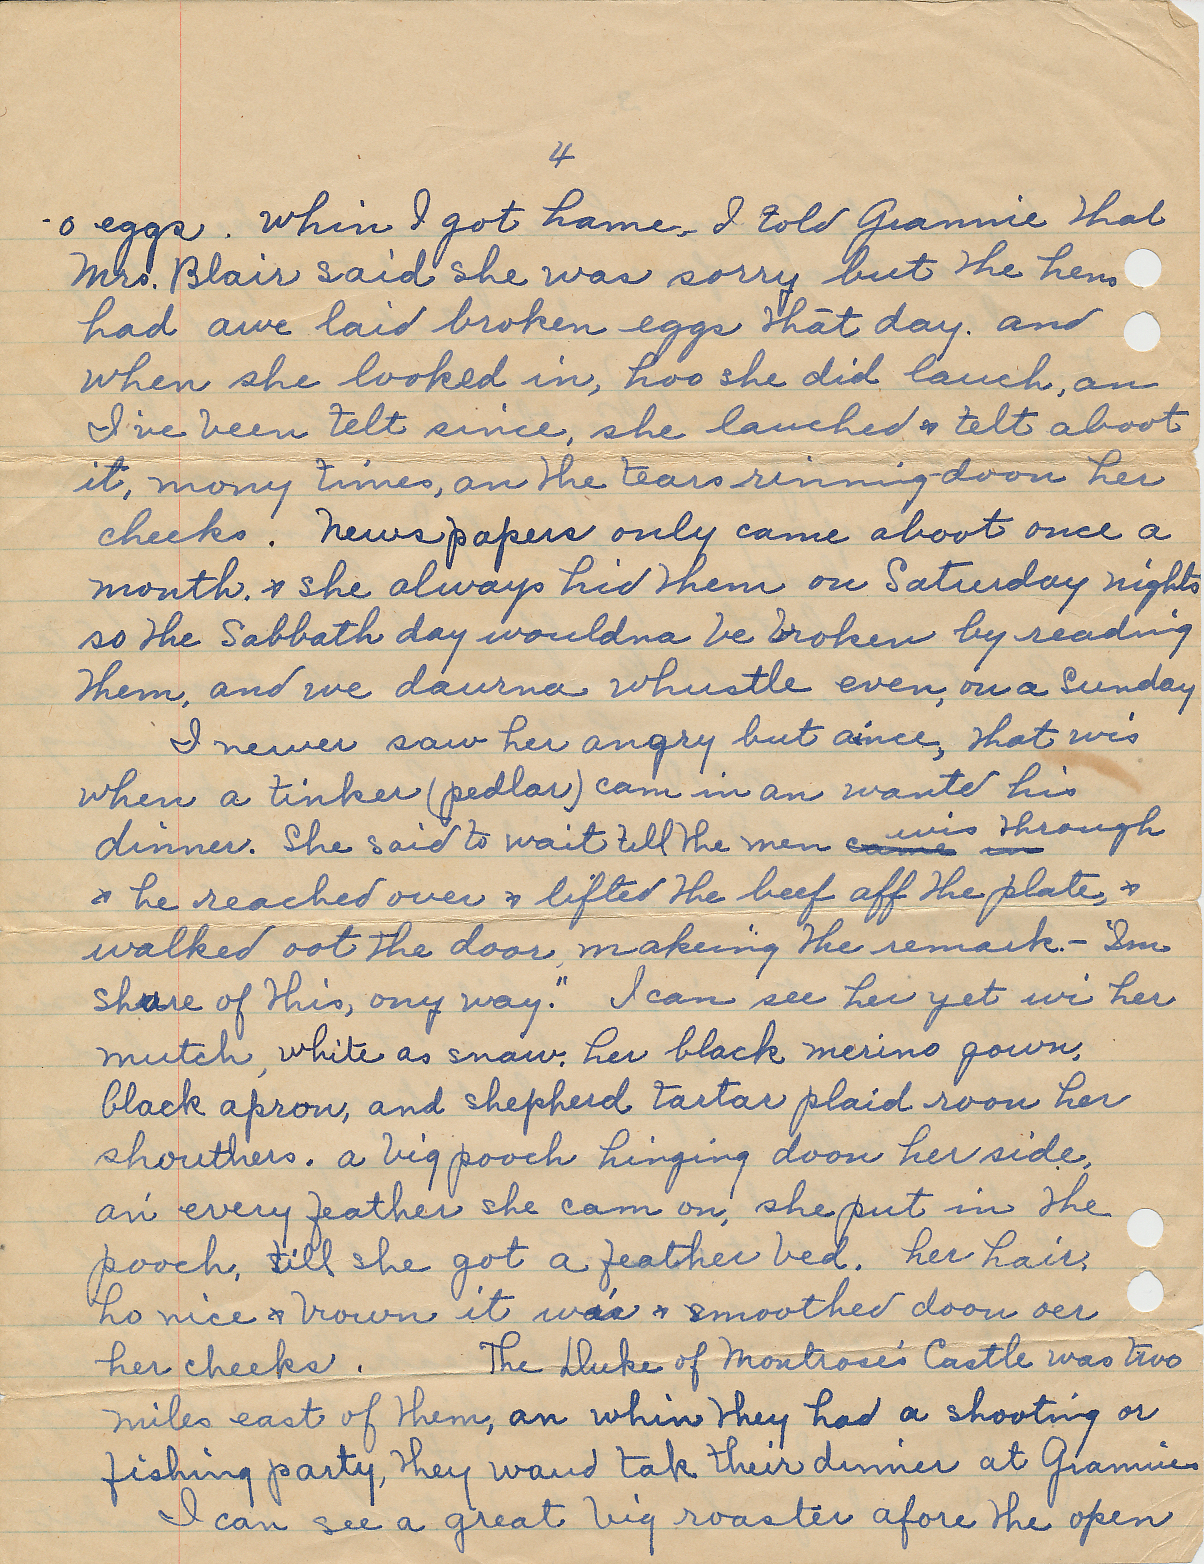 4
-o eggs. Whin I got hame, I told Grannie that
Mrs. Blair said she was sorry but the hens
had awe laid broken eggs that day. and
when she looked in, hoo she did lauch, an
I've been telt since, she lauched & telt aboot
it, mony times, an the tears rinning doon her
cheeks. Newspapers only came aboot once a
month. & she always hid them on Saturday nights
so the Sabbath day wouldna be broken by reading
them, and we daurna whustle even, on a Sunday
I never saw her angry but aince, that wis
when a tinker (pedlar) cam in an wantd his
dinner. She said to wait till the men came in wis through
& he reached over & lifted the beef aff the plate, &
walked oot the door, makeing the remark - "Im
shure of this, ony way." I can see her yet wi her
mutch, white as snaw. her black merino gown,
black apron, and shepherd tartar plaid roon her
shouthers. a big pooch hinging doon her side,
an' every feather she cam on, she put in the
pooch, till she got a feather bed. her hair,
ho nice & brown it was & smoothed doon oer
her cheeks. The Duke of Montrose's Castle was two
miles east of them, an whin they had a shooting or
fishing party, they waud tak their dinner at Grannies
I can see a great big roaster afore the open